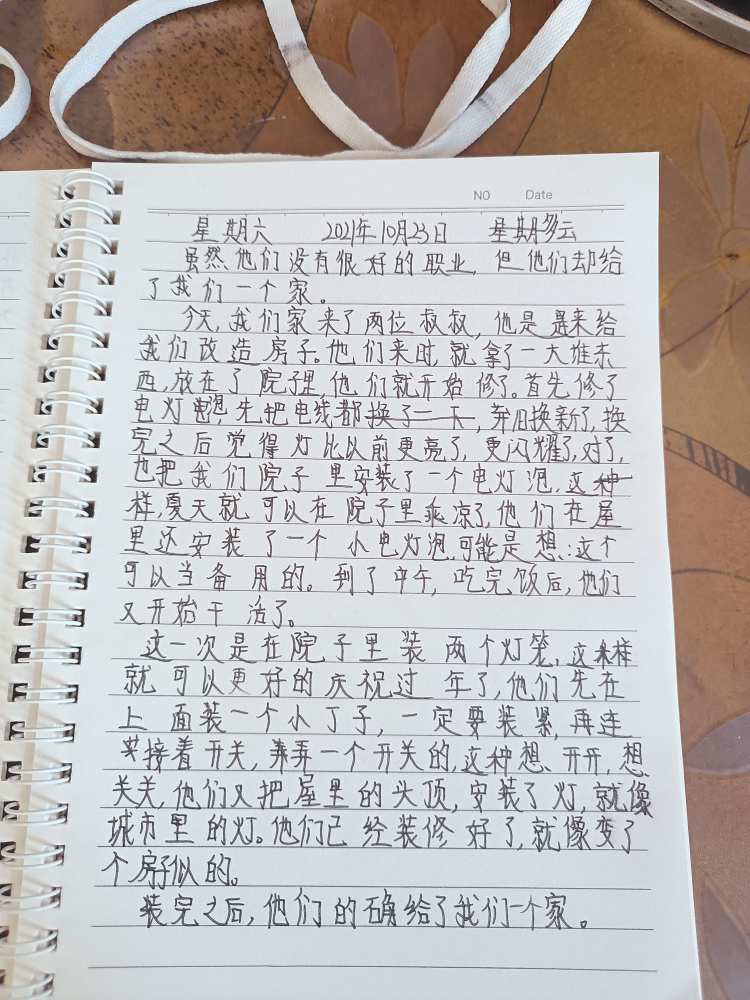 NO Date
星期六 2021年10月23日 多云
虽然他们没有很好的职业,但他们却给
了我们一个家。
今天,我们家来了两位叔叔,他是是来给
我们改造房子。他们来时,就拿了一大堆东
西,放在了院子里,他们就开始修了。首先修了
电灯泡,先把电线都换了一下,弃旧换新了,换
完之后觉得灯比以前更亮了,更闪耀了,对了,
也把我们院子里安装了一个电灯泡,这种
样,夏天就可以在院子里乘凉了,他们在屋
里还安装了一个小电灯泡,可能是想:这个
可以当备用的。到了中午,吃完饭后,他们
又开始干活了。
这一次是在院子里装两个灯笼,这样
就可以更好的庆祝过年了,他们先在
上面装一个小丁子,一定要装紧,再连
接着开关,弄一个开关的,这种想、开开,想
关关,他们又把屋里的头顶,安装了灯,就像
城市里的灯。他们已经装修好了,就像变了
个房子似的。
装完之后,他们的确给了我们一个家。